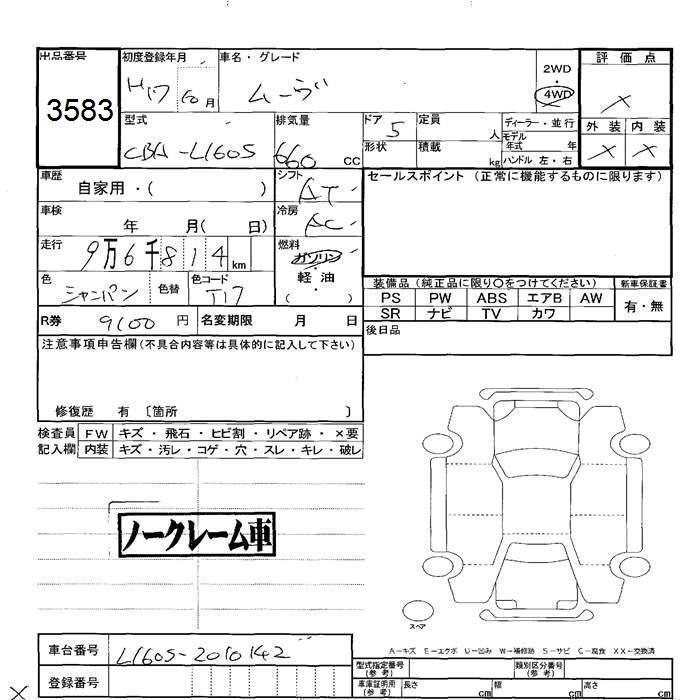 出品番号 初度登録年月 車名・グレード 2WD 評価点
3583 H17 10月 ムーヴ 4WD ×
型式 排気量 ドア 定員 ディーラー・並行 外装 内装
CBA-L160S 660 CC 5 人 モデル年式 年 × ×
形状 積載 kg ハンドル 左・右
車歴 自家用・( ) シフト AT セールスポイント (正常に機能するものに限ります)
車検 年 月( 日) 冷房 AC
走行 9万6千814km 燃料 ガソリン・軽油・( )
色 シャンパン 色替 色コード T17 装備品 (純正品に限り〇をつけてください) 新車保証書
PS PW ABS エアB AW 有・無
SR ナビ TV カワ
R券 9100 円 名変期限 月 日 後日品
注意事項申告欄(不具合内容等は具体的に記入して下さい)
修復歴 有 〔箇所 〕
検査員 FW キズ・飛石・ヒビ割・リペア跡・×要
記入欄 内装 キズ・汚レ・コゲ・穴・スレ・キレ・破レ
ノークレーム車
スペア
A-キズ E-エクボ U-凹み W-補修跡 S-サビ C-腐食 XX-交換済
車台番号 L160S-2010142 型式指定番号(参考) 類別区分番号(参考)
登録番号 車庫証明用(参考) 長さ cm 幅 cm 高さ cm
×